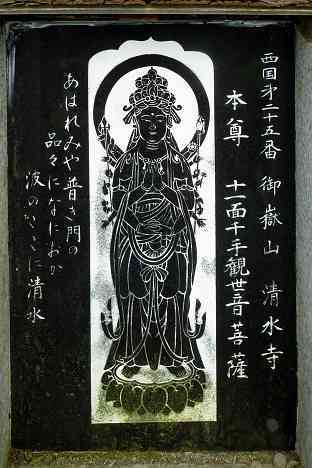 西国第二十五番 御嶽山 清水寺
本尊 十一面千手観世音菩薩
あはれみや普き門の
品々になにおか
波のなこに清水